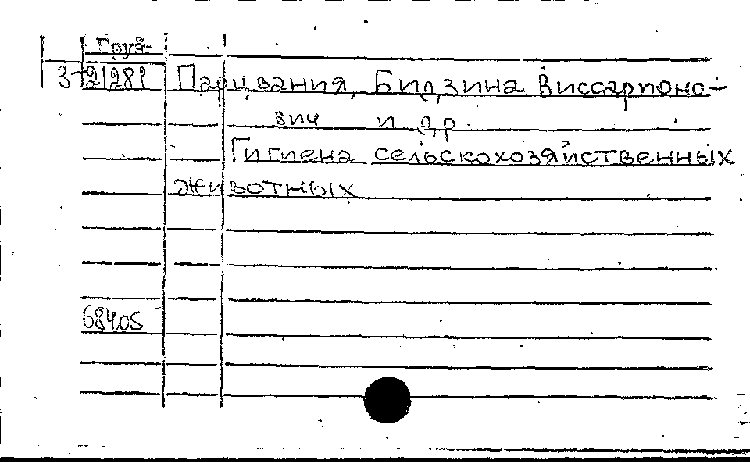 Груз-
3-21281 Парцвания, Бидзина Виссарионо-
вич и др
Гигиена сельскохозяйственных
животных
68405